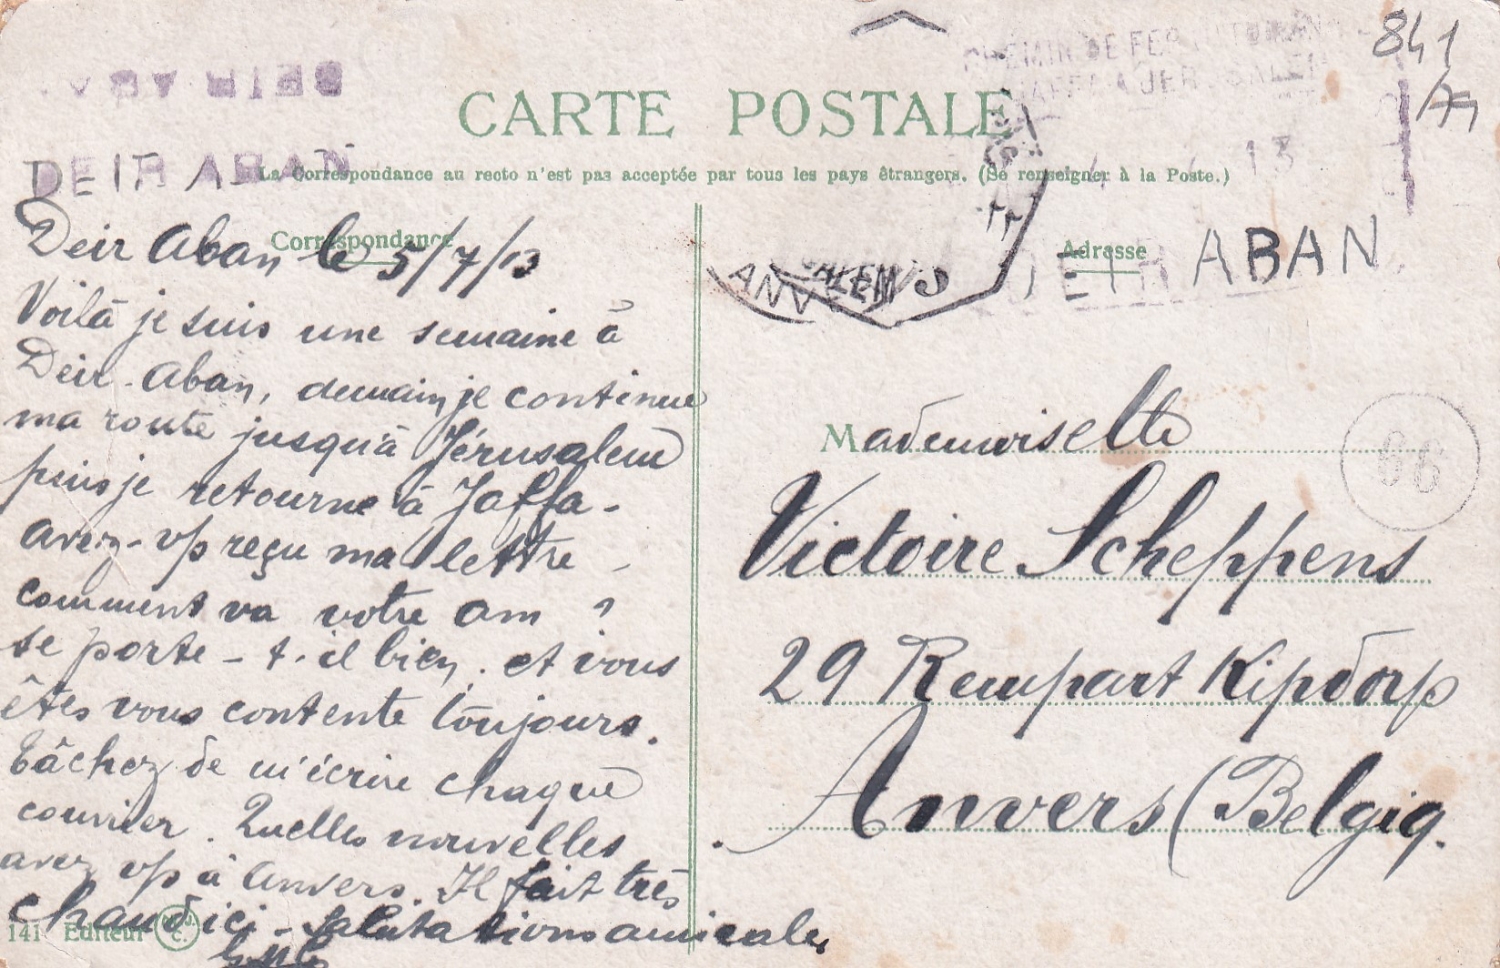 841
/79
CHEMIN DE FER OTTOMAN
JAFFA A JERUSALEM
13
DEIR ABAN
CARTE POSTALE
DEIR ABAN
La Correspondance au recto n'est pas acceptée par tous les pays étrangers. (Se renseigner à la Poste.)
Correspondance
Adresse
DEIR ABAN
ANV
SALEM
Deir Aban le 5/7/13
Voilà je suis une semaine à
Deir-Aban, demain je continue
ma route jusqu'à Jérusalem
puis je retourne à Jaffa-
avez-vs reçu ma lettre -
comment va votre am ?
se porte-t-il bien. et vous
êtes vous contente toujours.
Tâchez de m'écrire chaque
courrier. Quelles nouvelles
avez vs à Anvers. Il fait très
chaud ici - Salutations amicales
141 Editeur
Mademoiselle
Victoire Scheppens
29 Rempart Kipdorp
Anvers (Belgiq.
66